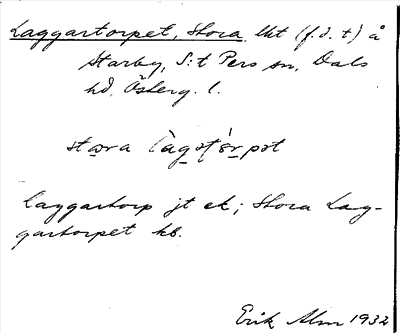 Laggartorpet, Stora. lht (f.d. t) å
Starby, S:t Pers sn, Dals
hd, Österg. l.
stωra làgəʈὲrpət
Laggartorp jt ek; Stora Lag-
gartorpet kb.
Erik Alm 1932